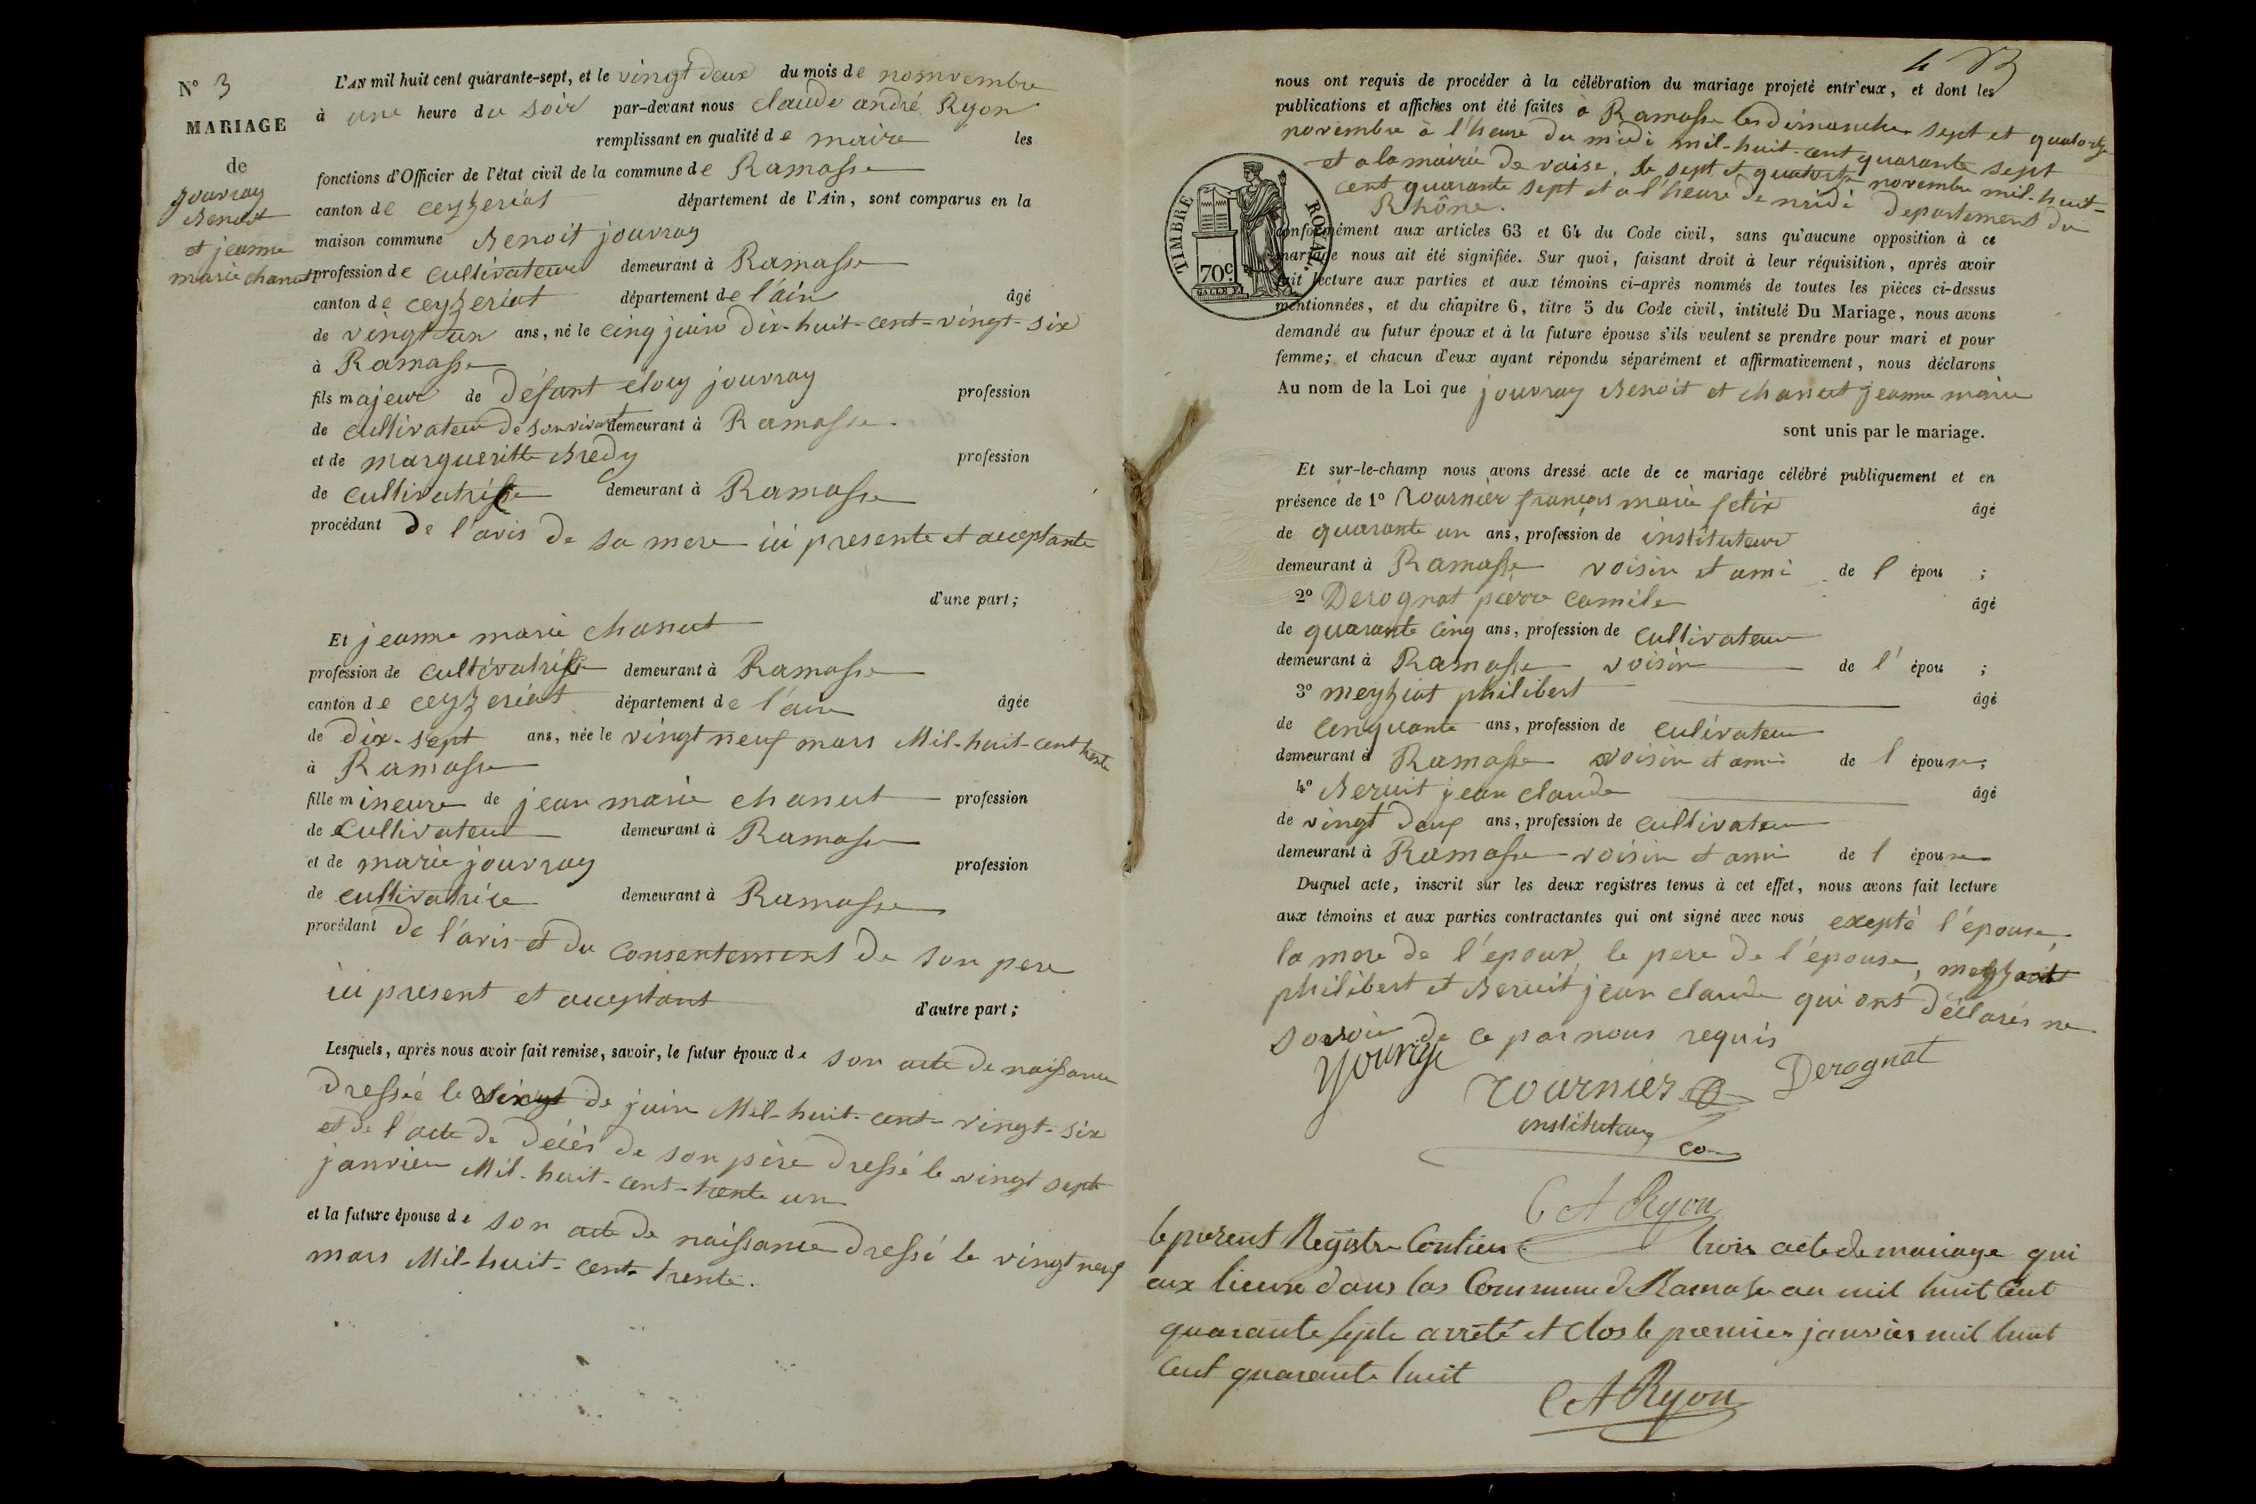 N° 3
MARIAGE
de
jouvray
Benoit
et jeanne
marie chanut
L'AN mil huit cent quarante-sept, et le vingt deux du mois de nomvembre
à une heure du soir par-devant nous claude andré Ryon
remplissant en qualité de maire les
fonctions d'Officier de l'état civil de la commune de Ramasse
canton de ceyzeriat département de l'Ain, sont comparus en la
maison commune Benoit jouvray
profession de cultivateur demeurant à Ramasse
canton de ceyzeriat département de l'ain âgé
de vingt un ans, né le cinq juin dix-huit-cent-vingt-six
à Ramasse
fils majeur de défant eloy jouvray profession
de cultivateur de son vivant demeurant à Ramasse
et de margueritte Bredy profession
de cultivatrisse demeurant à Ramasse
procédant de l'avis de sa mere ici presente et acceptante
d'une part;
Et jeanne marie chanut
profession de cultivatrisse demeurant à Ramasse
canton de ceyzeriat département de l'ain âgée
de dix-sept ans, née le vingt neuf mars Mil-huit-cent trente
à Ramasse
fille mineure de jean marie chanut profession
de cultivateur demeurant à Ramasse
et de marie jouvray profession
de cultivatrice demeurant à Ramasse
procédant de l'avis et du consentement de son pere
ici present et acceptant
d'autre part;
Lesquels, après nous avoir fait remise, savoir, le futur époux de son acte de naissance
dressée le de juin Mil-huit-cent-vingt-six
et de l'acte de décès de son père dressé le vingt sept
janvier Mil-huit-cent-trente un
et la future épouse de son acte de naissance dressé le vingt neuf
mars Mil-huit-cent-trente.
nous ont requis de procéder à la célébration du mariage projeté entr'eux, et dont les
publications et affiches ont été faites à Ramasse les dimanches sept et quatorze
novembre à l'heure du midi mil-huit-cent quarante sept
et a la mairie de vaise, le sept et quatorze novembre mil-huit-
cent quarante sept et a l'heure de midi departement du
Rhône.
TIMBRE ROYAL.
70c
conformément aux articles 63 et 64 du Code civil, sans qu'aucune opposition à ce
mariage nous ait été signifiée. Sur quoi, faisant droit à leur réquisition, après avoir
fait lecture aux parties et aux témoins ci-après nommés de toutes les pièces ci-dessus
mentionnées, et du chapitre 6, titre 5 du Code civil, intitulé Du Mariage, nous avons
demandé au futur époux et à la future épouse s'ils veulent se prendre pour mari et pour
femme; et chacun d'eux ayant répondu séparément et affirmativement, nous déclarons
Au nom de la Loi que jouvray Benoit et chanut jeanne marie
sont unis par le mariage.
Et sur-le-champ nous avons dressé acte de ce mariage célébré publiquement et en
présence de 1° Tournier françois marie felix âgé
de quarante un ans, profession de instituteur
demeurant à Ramasse voisin et ami de l épou ;
2° Derognat pierre camile âgé
de quarante cinq ans, profession de cultivateur
demeurant à Ramasse voisin de l' épou ;
3° meyziat philibert âgé
de cinquante ans, profession de culivateur
demeurant à Ramasse voisin et ami de l épouse;
4° Beruit jean claude âgé
de vingt deux ans, profession de cultivateur
demeurant à Ramasse voisin et ami de l épouse
Duquel acte, inscrit sur les deux registres tenus à cet effet, nous avons fait lecture
aux témoins et aux parties contractantes qui ont signé avec nous excepté l'épouse,
la mere de l'epoux, le pere de l'épouse, meyziat
philibert et Beruit jean claude qui ont déclarés ne
savoir de ce par nous requis
Tournier
Derognat
instituteur
C A Ryon
le present Registre Contien trois acte de mariage qui
eux lieux dans las Commune de Ramasse au mil huit Cent
quarante septe arrêté et Clos le premier janvier mil huit
Cent quarante huit
C A Ryon